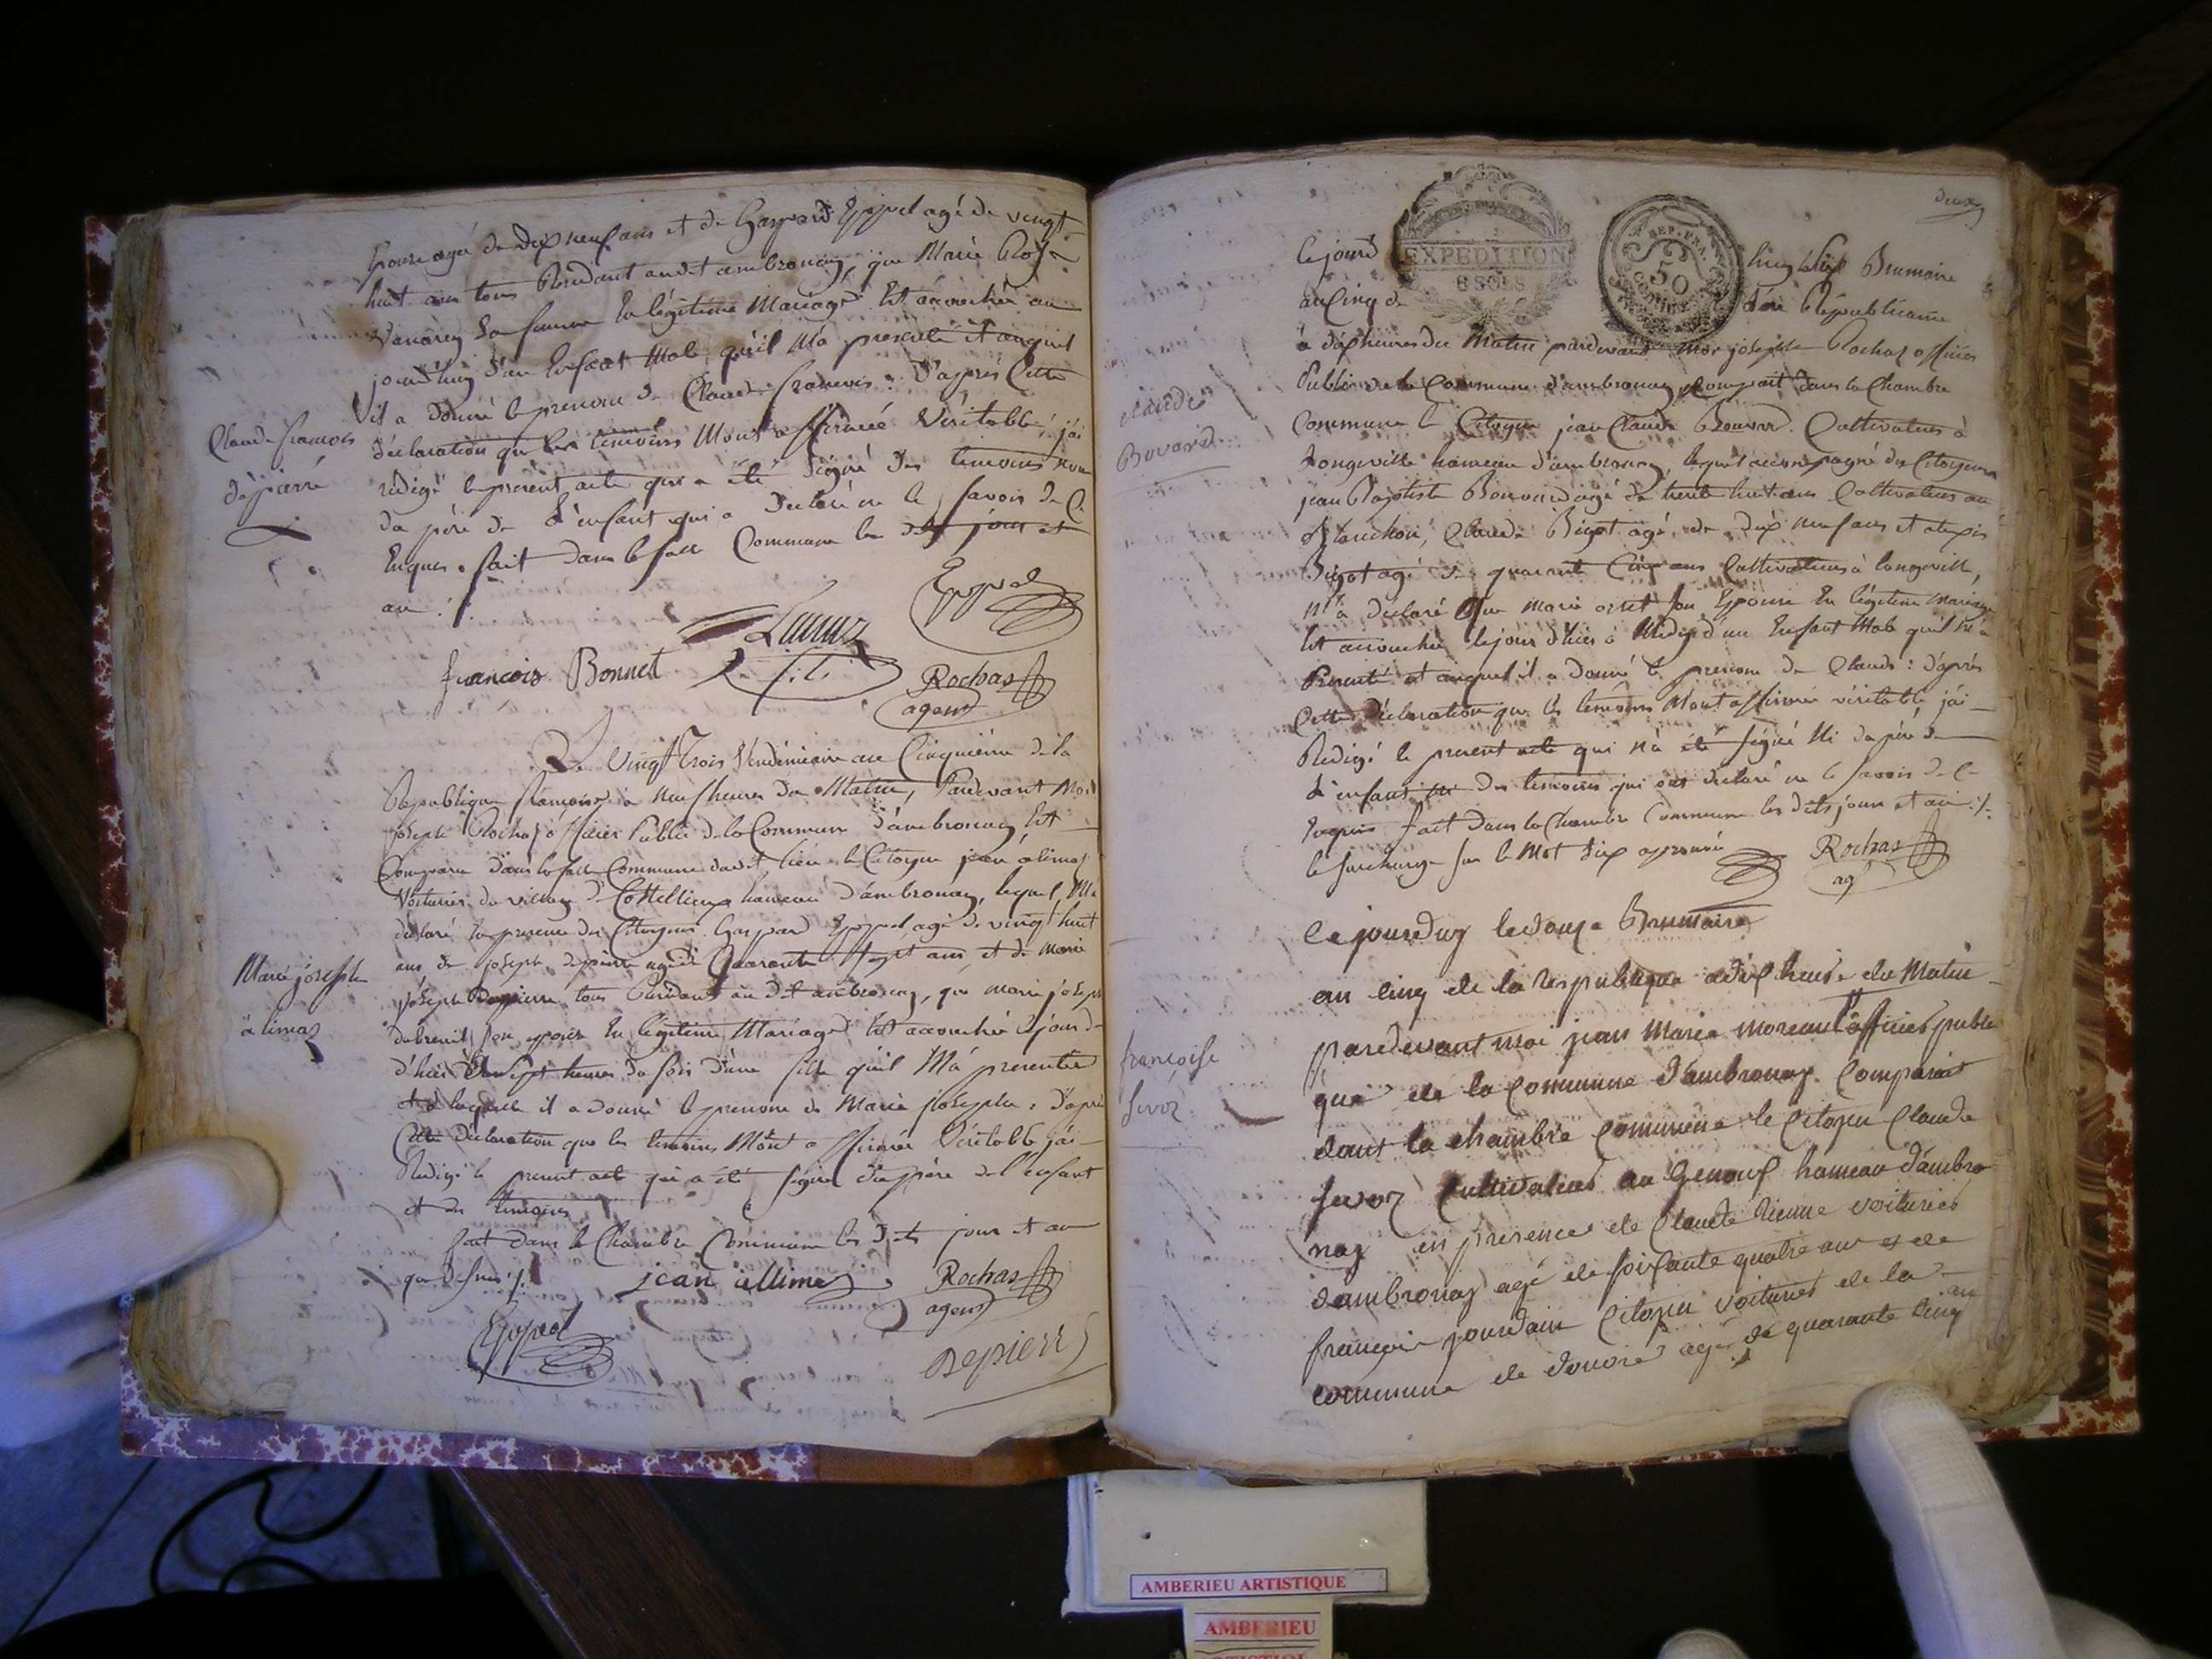 Epouse agée de dix neuf ans et de Gaspard Eppel agé de vingt
huit ans tous Residant audit ambronay, que Marie
sa femme En légitime Mariage Est accouchée au
jourd'huy d'un Enfant Male qu'il M'a presenté et auquel
il a donné le prenom de Claude francois : D'après Cette
Claude francois
dépierre
déclaration que les témoins M'ont affirmé Véritable, j'ai
rédigé le présent acte qui a été signé des temoins non
du père de L'enfant qui a Declaré ne le savoir de Ce
Enquis . fait dans la salle Commune les dits jour et
an
Eppel
francois Bonnet
fils
Rochas
agent
Le Vingt trois Vendémiaire an Cinquième de la
Republique française à Neuf heures du Matin, Pardevant Moi
joseph Rochas officier Public de la Commune d'ambronay Est
Comparu dans la salle Commune dudit lieu le Citoyen jean alimas
Voiturier du village hameau d'ambronay, lequel M'a
declaré En presence des Citoyens Gaspard Eppel agé de vingt huit
ans de joseph depierre agé de Quarante sept ans, et de marie
Marie josephe
alimas
joseph depierre tous Residant au dit ambronay, que marie joseph
dubreuil son epouse En légitime Mariage Est accouchée le jour
d'hier à sept heures du soir d'une fille qu'il M'a presenté
et à laquelle il a donné le prenom de Marie josephe : D'après
Cette déclaration que les temoins M'ont affirmée Véritable j'ai
Redigé le present acte qui a été signé du père de l'enfant
et des temoins
fait dans la Chambre Commune les Dits jour et an
que dessus ./.
jean allimas
Rochas
agent
Eppel
Depierre
deux
EXPEDITION
8 SOLS
REP. FRA.
50
CENTIMES
Cejourd huy le six Brumaire
an Cinq de l'ère Républicaine
à dix heures du Matin pardevant Moi josephe Rochas officier
Public de la Commune d'ambronay Comparait dans la Chambre
Claude
Bovard
Commune le Citoyen jean Claude Bouvard Cultivateur à
Longeville hameau d'ambronay, lequel accompagné des Citoyens
jean Baptiste Bouvard agé de trente huit ans Cultivateur au
Blanchon, Claude Bigot agé de dix neuf ans et alexis
Bigot agé de quarante Cinq ans Cultivateurs à Longeville,
m'a declaré Que marie orset son Epouse En légitime Mariage
Est accouchée le jour d'hier à Midy d'un Enfant Male qu'il m'a
Presenté et auquel il a donné le prenom de Claude : d'après
Cette Déclaration que les temoins M'ont affirmée véritable j'ai
Redigé le present acte qui n'a été signé Ni du père de
L'enfant ni des temoins qui ont declaré ne le savoir de ce
Enquis fait dans la Chambre Commune les dits jour et an ./.
la surcharge sur le Mot six approuvée
Rochas
ag
Ce jourduy le douze Brumaire
an cinq de la republique a dix heure du Matin
pardevant moi jean Marie moreau officier publi
francoise
que de la commune d'ambronay Comparait
dant la chambre commune le citoyen Claude
Cultivateur au Genoux hameau d'ambro
nay en presence de Claude voiturier
d'ambronay agé de soixante quatre ans et de
françois jourdain Citoyen voiturier de la
commune de douvre agé de quarante cinq
an
AMBERIEU ARTISTIQUE
AMBERIEU
ARTISTIQUE